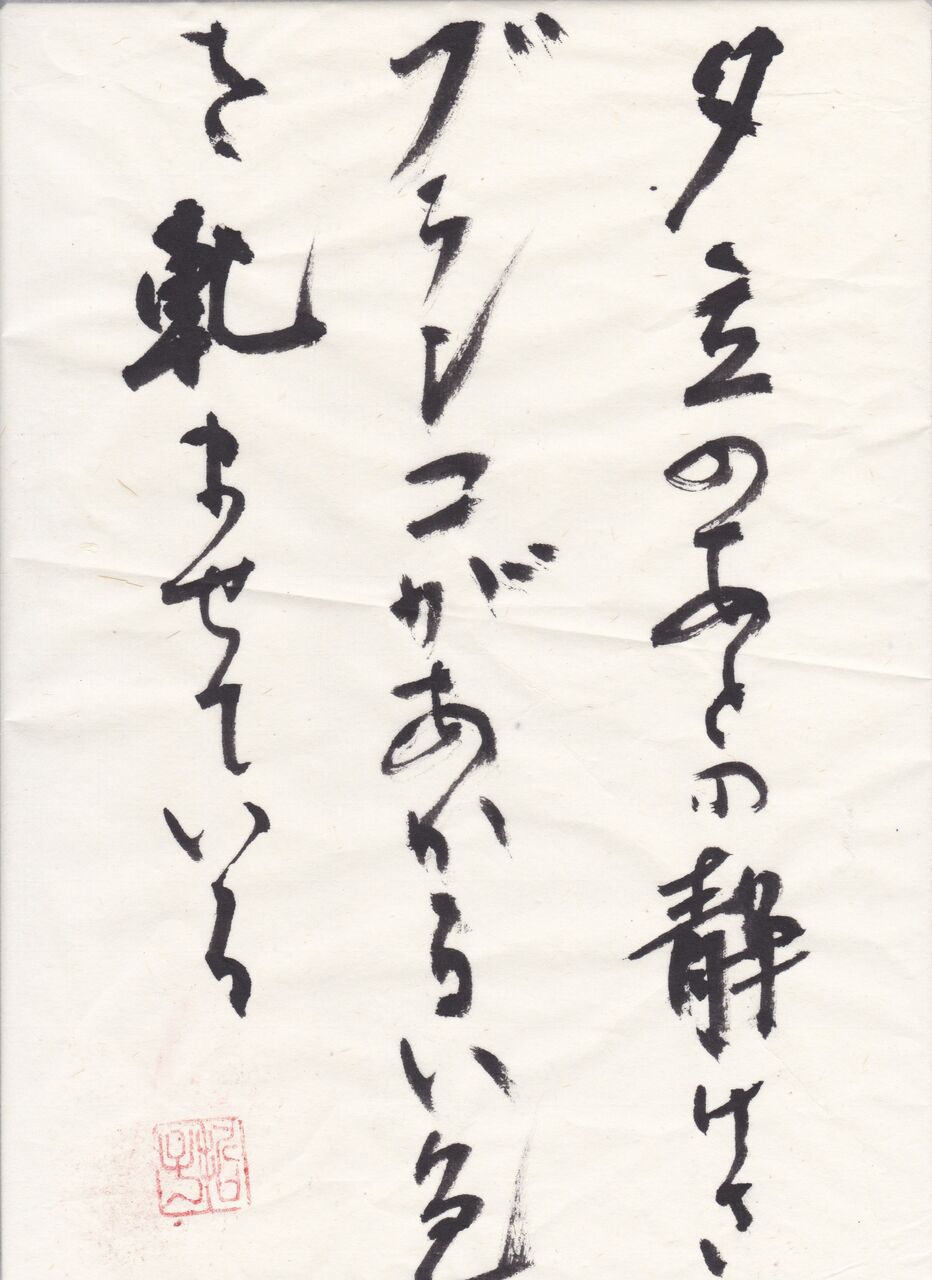 夕立のあとの静けさ
ブランコがあかるい色
を軋ませている